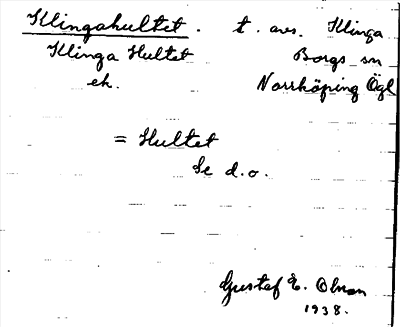 Klingahultet. t. avs. Klinga
Klinga Hultet Borgs sn
ek. Norrköping Ögl
= Hultet
Se d.o.
Gustef E. Olman
1938.